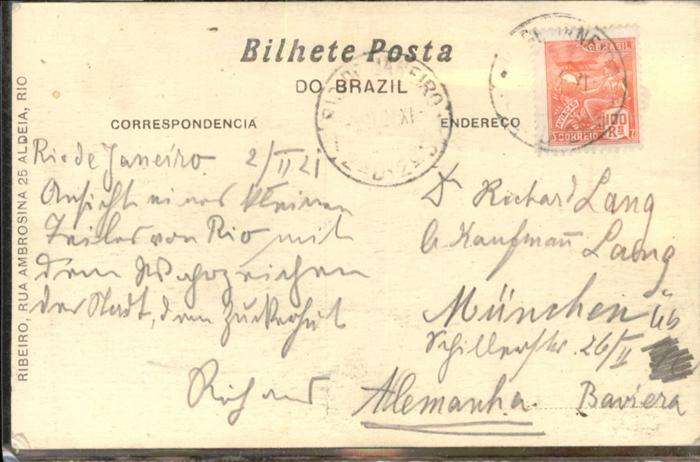 Bilhete Posta
DO BRAZIL
CORRESPONDENCIA
ENDEREÇO
RIBEIRO, RUA AMBROSINA 25 ALDEIA, RIO
BRASIL
100
Rs
CORREIO
RIO DE JANEIRO
Rio de Janeiro 2/II 21
Ansicht eines kleinen
Teiles von Rio mit
dem Wahrzeichen
der Stadt, dem Zuckerhut
Richard
Dr Richard Lang
Kaufmann Lang
München
Schillerstr 26/II
Alemanha. Baviera